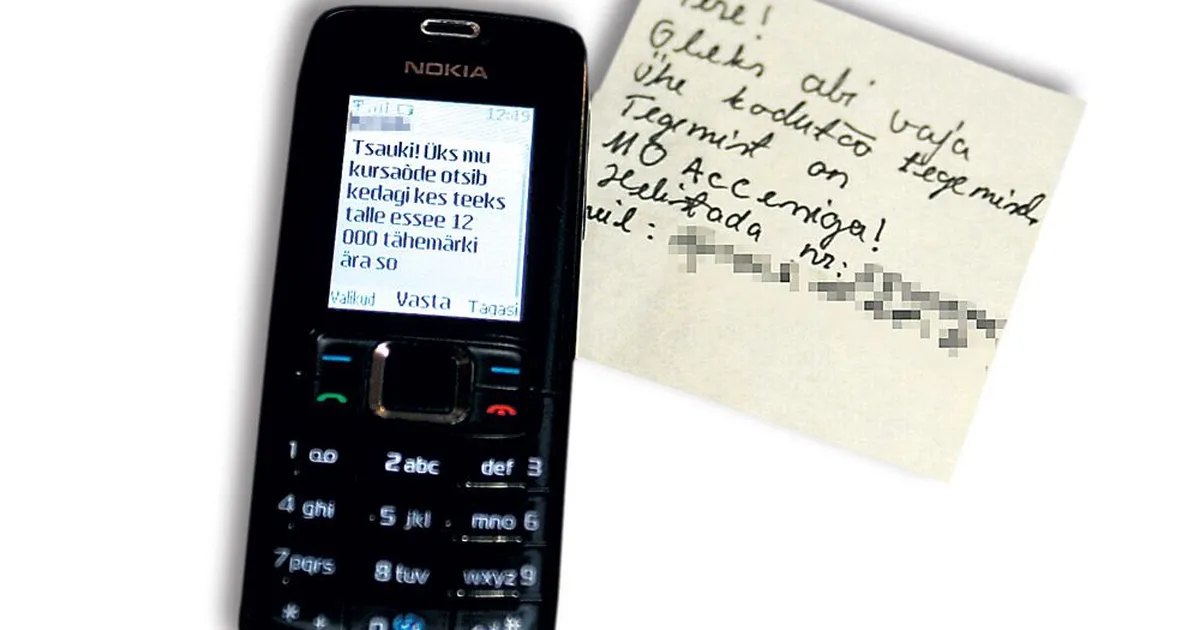 NOKIA
12:49
Tsauki! Üks mu
kursaõde otsib
kedagi kes teeks
talle essee 12
000 tähemärki
ära so
Valikud Vasta Tagasi
1 oo 2 abc def 3
4 ghi 5 jkl mno 6
7 pqrs 8 tuv wxyz 9
* + #
Tere!
Oleks abi vaja
ühe kodutöö tegemisel,
Tegemist on
MO Acceniga!
Helistada nr: